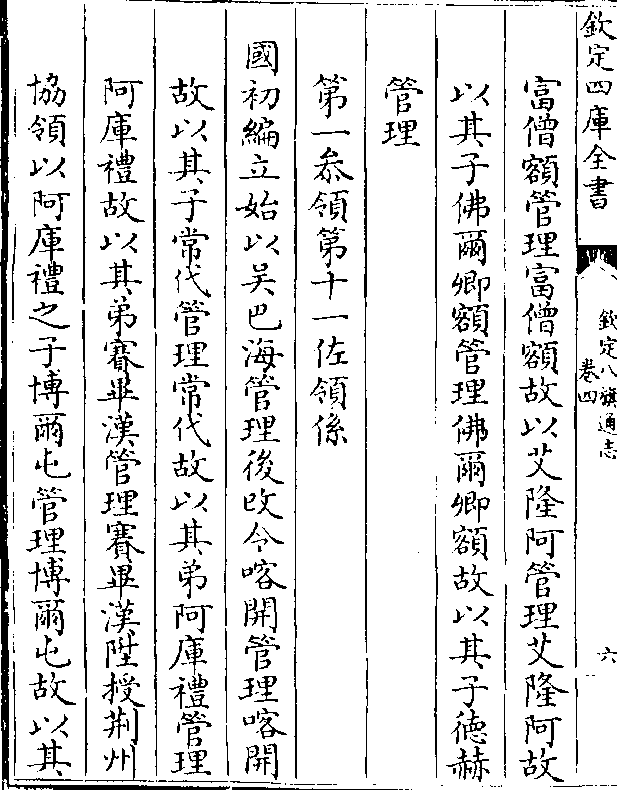 欽定四庫全書
欽定八旗通志
卷四
六
富僧額管理富僧額故以艾隆阿管理艾隆阿故
以其子佛爾卿額管理佛爾卿額故以其子德赫
管理
第一叅領第十一佐領係
國初編立始以吴巴海管理後改令喀開管理喀開
故以其子常代管理常代故以其弟阿庫禮管理
阿庫禮故以其弟賽畢漢管理賽畢漢陞授荆州
協領以阿庫禮之子博爾屯管理博爾屯故以其